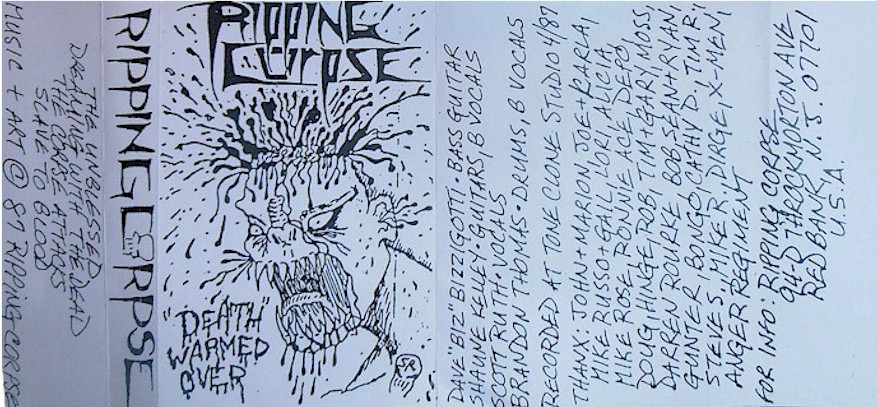 THE UNBLESSED
DEALING WITH THE DEAD
THE CORPSE ATTACKS
SLAVE TO BLOOD
MUSIC + ART @ 87 RIPPING CORPSE
RIPPING CORPSE
RIPPING
CORPSE
"DEATH"
WARMED
OVER
SR
DAVE "BIZ" BIZZIGOTTI · BASS GUITAR
SHAUNE KELLEY · GUITARS, B VOCALS
SCOTT RUTH · VOCALS
BRANDON THOMAS · DRUMS, B VOCALS
RECORDED AT TONE CLONE STUDIO 4/87
THANX: JOHN + MARION, JOE + KARLA,
MIKE RUSSO + GAIL, LORI, ALICIA,
MIKE ROSE, RONNIE, ACE, DEPO,
DOUG, HINGE, ROB, TIM + GARY, MOSS,
DARREN ROURKE, BOB, SEAN + RYAN,
GUNTER, BONGO, CATHY D., TIM R,
STEVE S, MIKE R, DIRGE, X-MEN,
ANGER REGIMENT
FOR INFO: RIPPING CORPSE
94-D THROCKMORTON AVE
RED BANK, N.J. 07701
U.S.A.